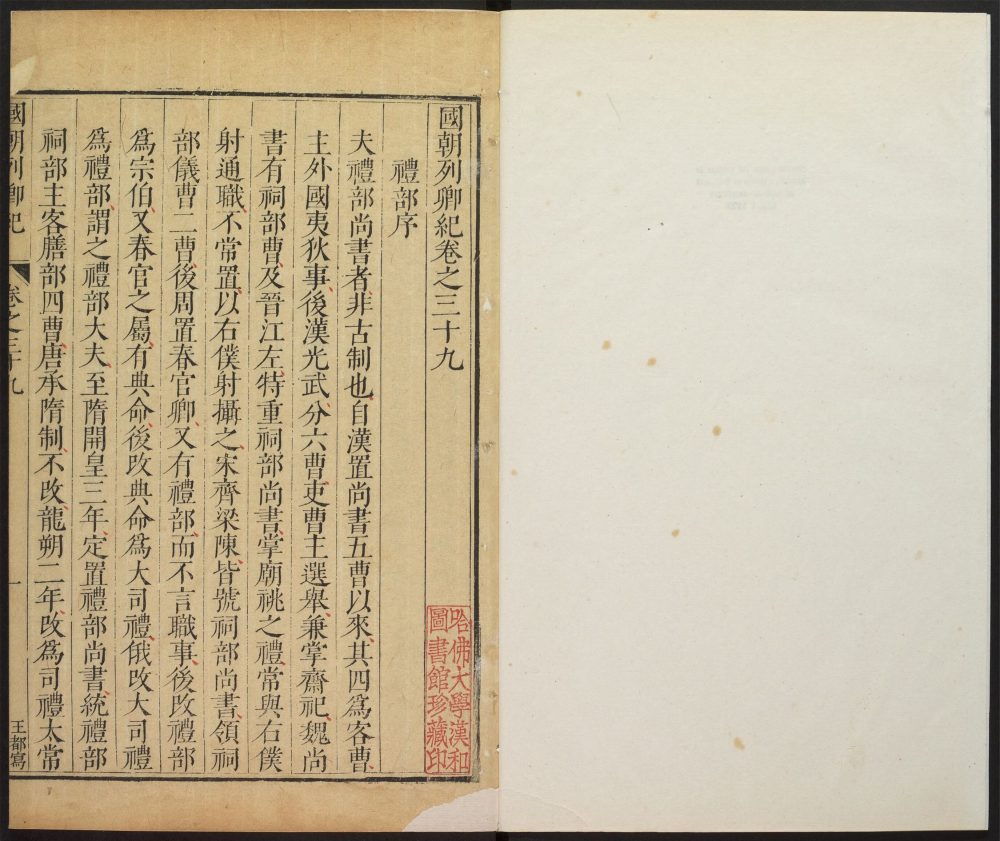 國朝列卿紀卷之三十九
禮部序
夫禮部尚書者非古制也自漢置尚書五曹以來其四爲客曹
主外國夷狄事後漢光武分六曹吏曹主選舉兼掌齋祀魏尚
書有祠部曹及晉江左特重祠部尚書掌廟祧之禮常與右僕
射通職不常置以右僕射攝之宋齊梁陳皆號祠部尚書領祠
部儀曹二曹後周置春官卿又有禮部而不言職事後改禮部
爲宗伯又春官之屬有典命後改典命爲大司禮俄改大司禮
爲禮部謂之禮部大夫至隋開皇三年定置禮部尚書統禮部
祠部主客膳部四曹唐承隋制不改龍朔二年改爲司禮太常
國朝列卿紀
卷之三十九
一
王都寫
哈佛大學漢和
圖書館珍藏印